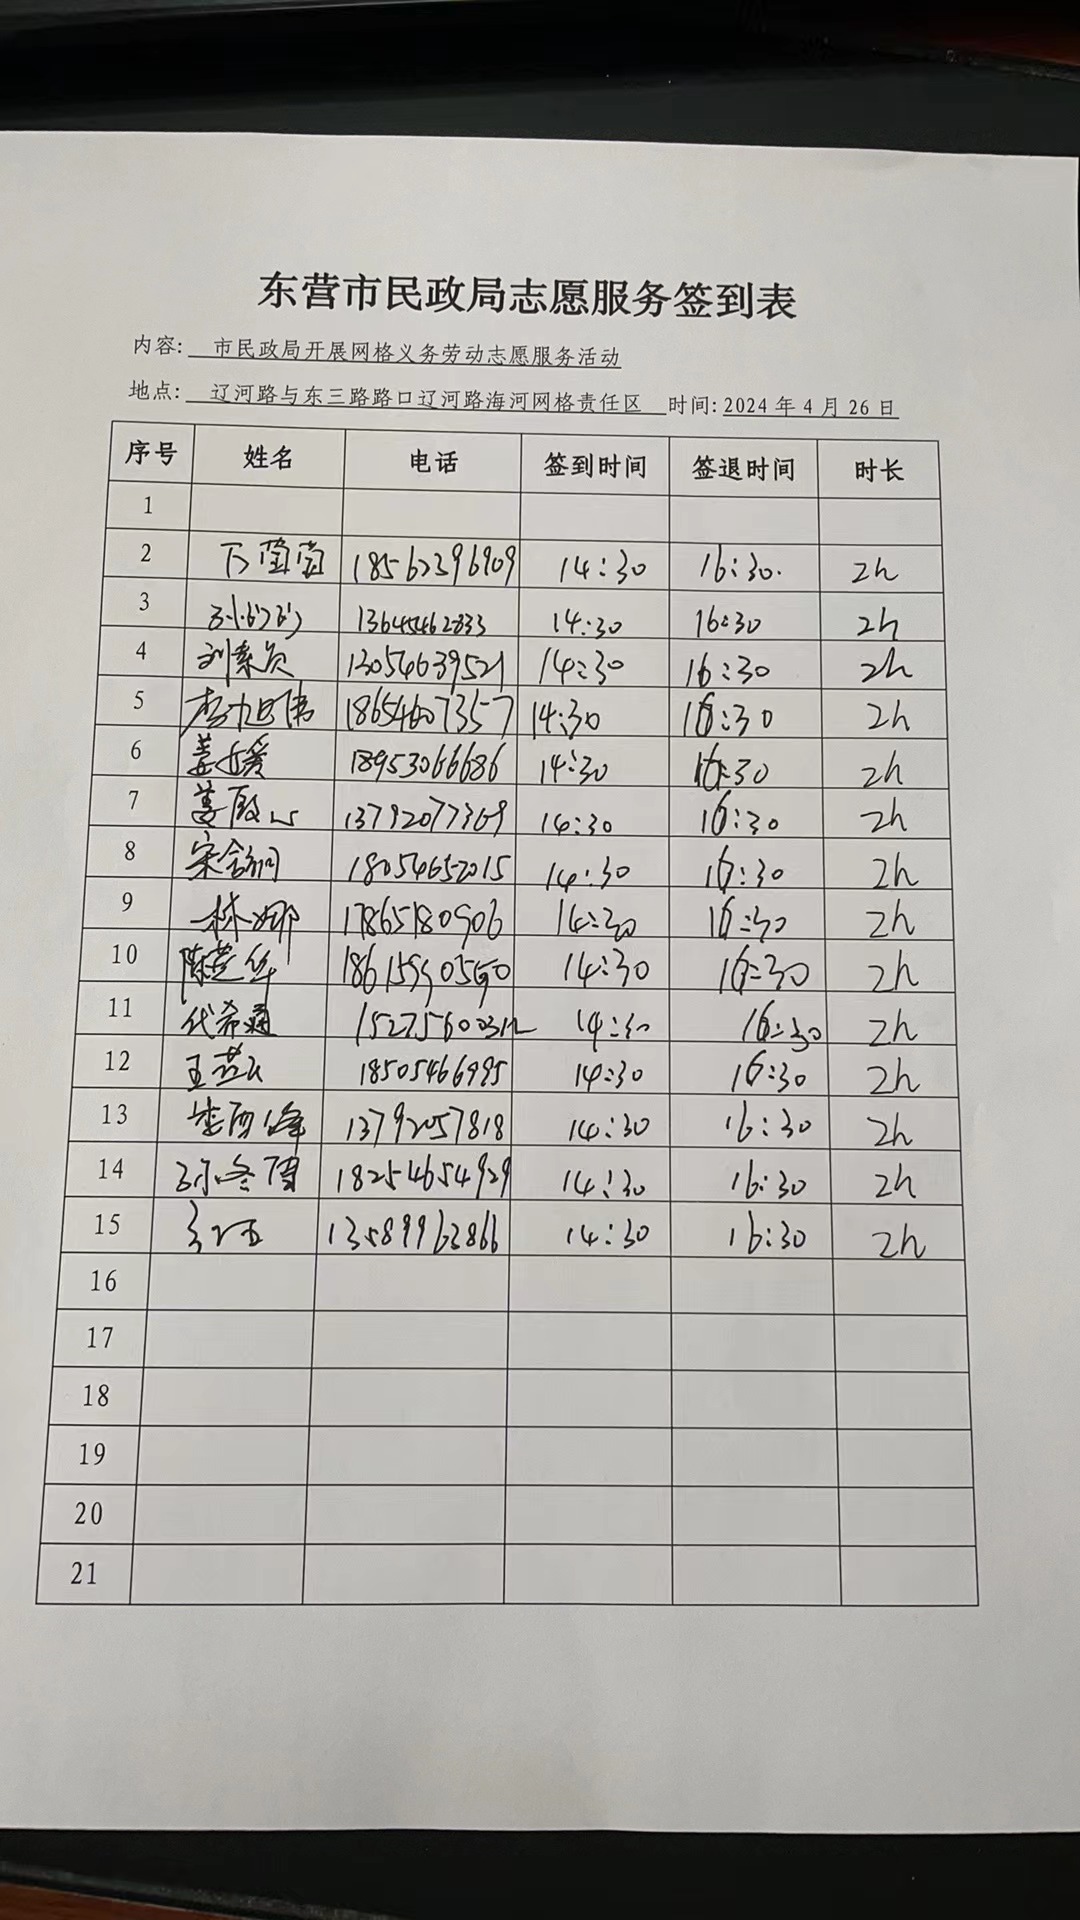 东营市民政局志愿服务签到表
内容: 市民政局开展网格义务劳动志愿服务活动
地点: 辽河路与东三路路口辽河路海河网格责任区 时间: 2024 年 4 月 26 日
序号 姓名 电话 签到时间 签退时间 时长
1
2 14:30 16:30. 2h
3 14:30 16:30 2h
4 13054639521 14:30 16:30 2h
5 18654607357 14:30 16:30 2h
6 姜媛 18953066686 14:30 16:30 2h
7 姜殿 13792077369 14:30 16:30 2h
8 18054652015 14:30 16:30 2h
9 林娜 17865180906 14:30 16:30 2h
10 14:30 16:30 2h
11 代希通 14:30 16:30 2h
12 18505466995 14:30 16:30 2h
13 13792057818 14:30 16:30 2h
14 18254654929 14:30 16:30 2h
15 13589963866 14:30 16:30 2h
16
17
18
19
20
21